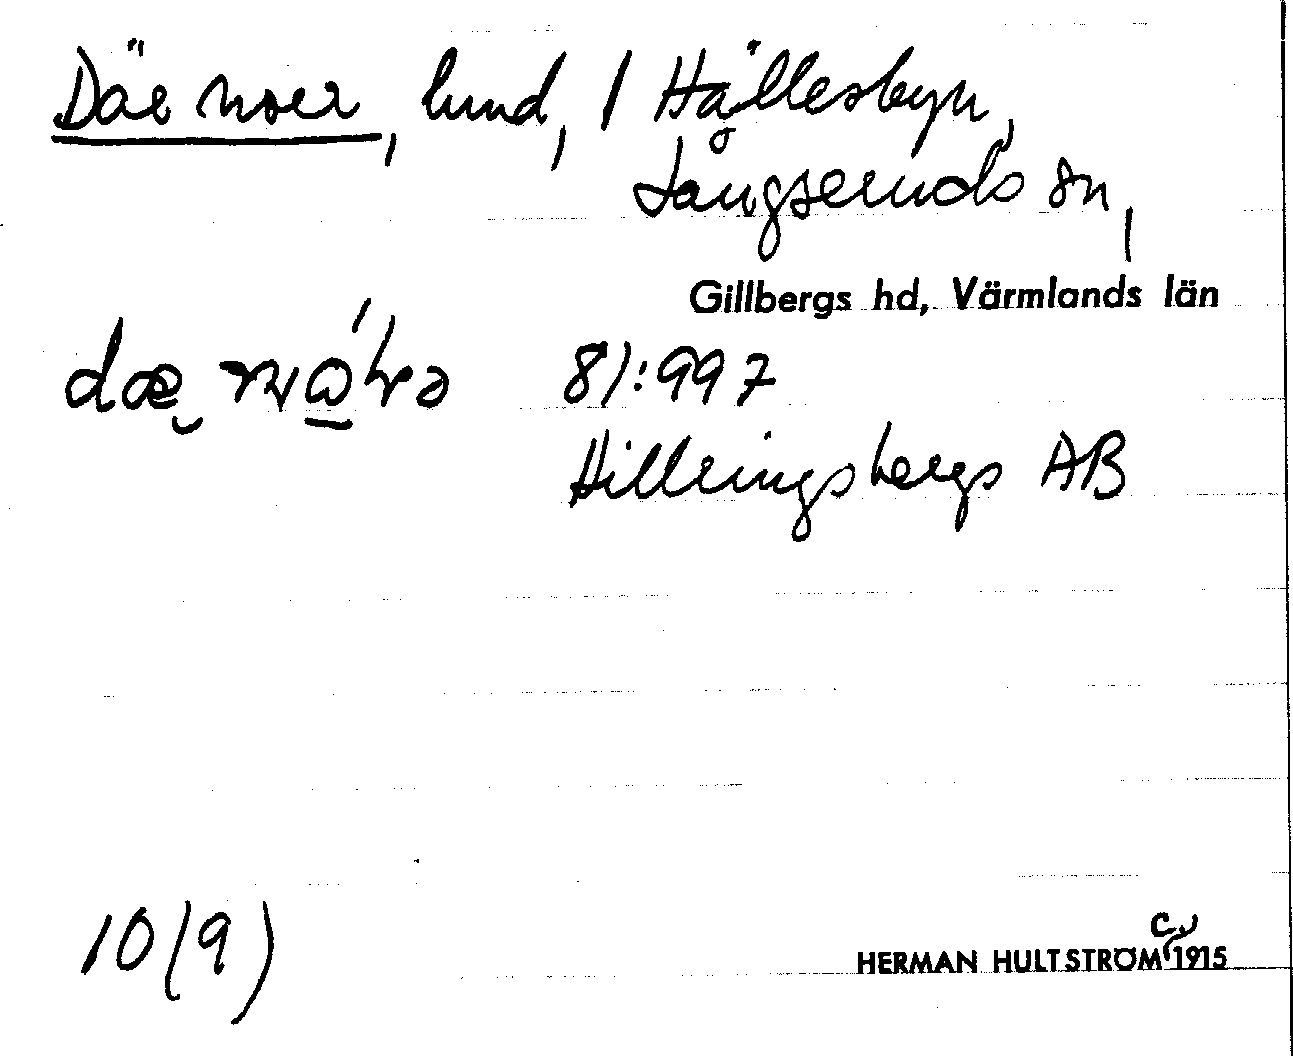 Däe noer, lund, 1 Hällesbyn,
Långseruds sn,
Gillbergs hd, Värmlands län
81:997
Hillringsbergs AB
10(9)
HERMAN HULTSTRÖM 1915